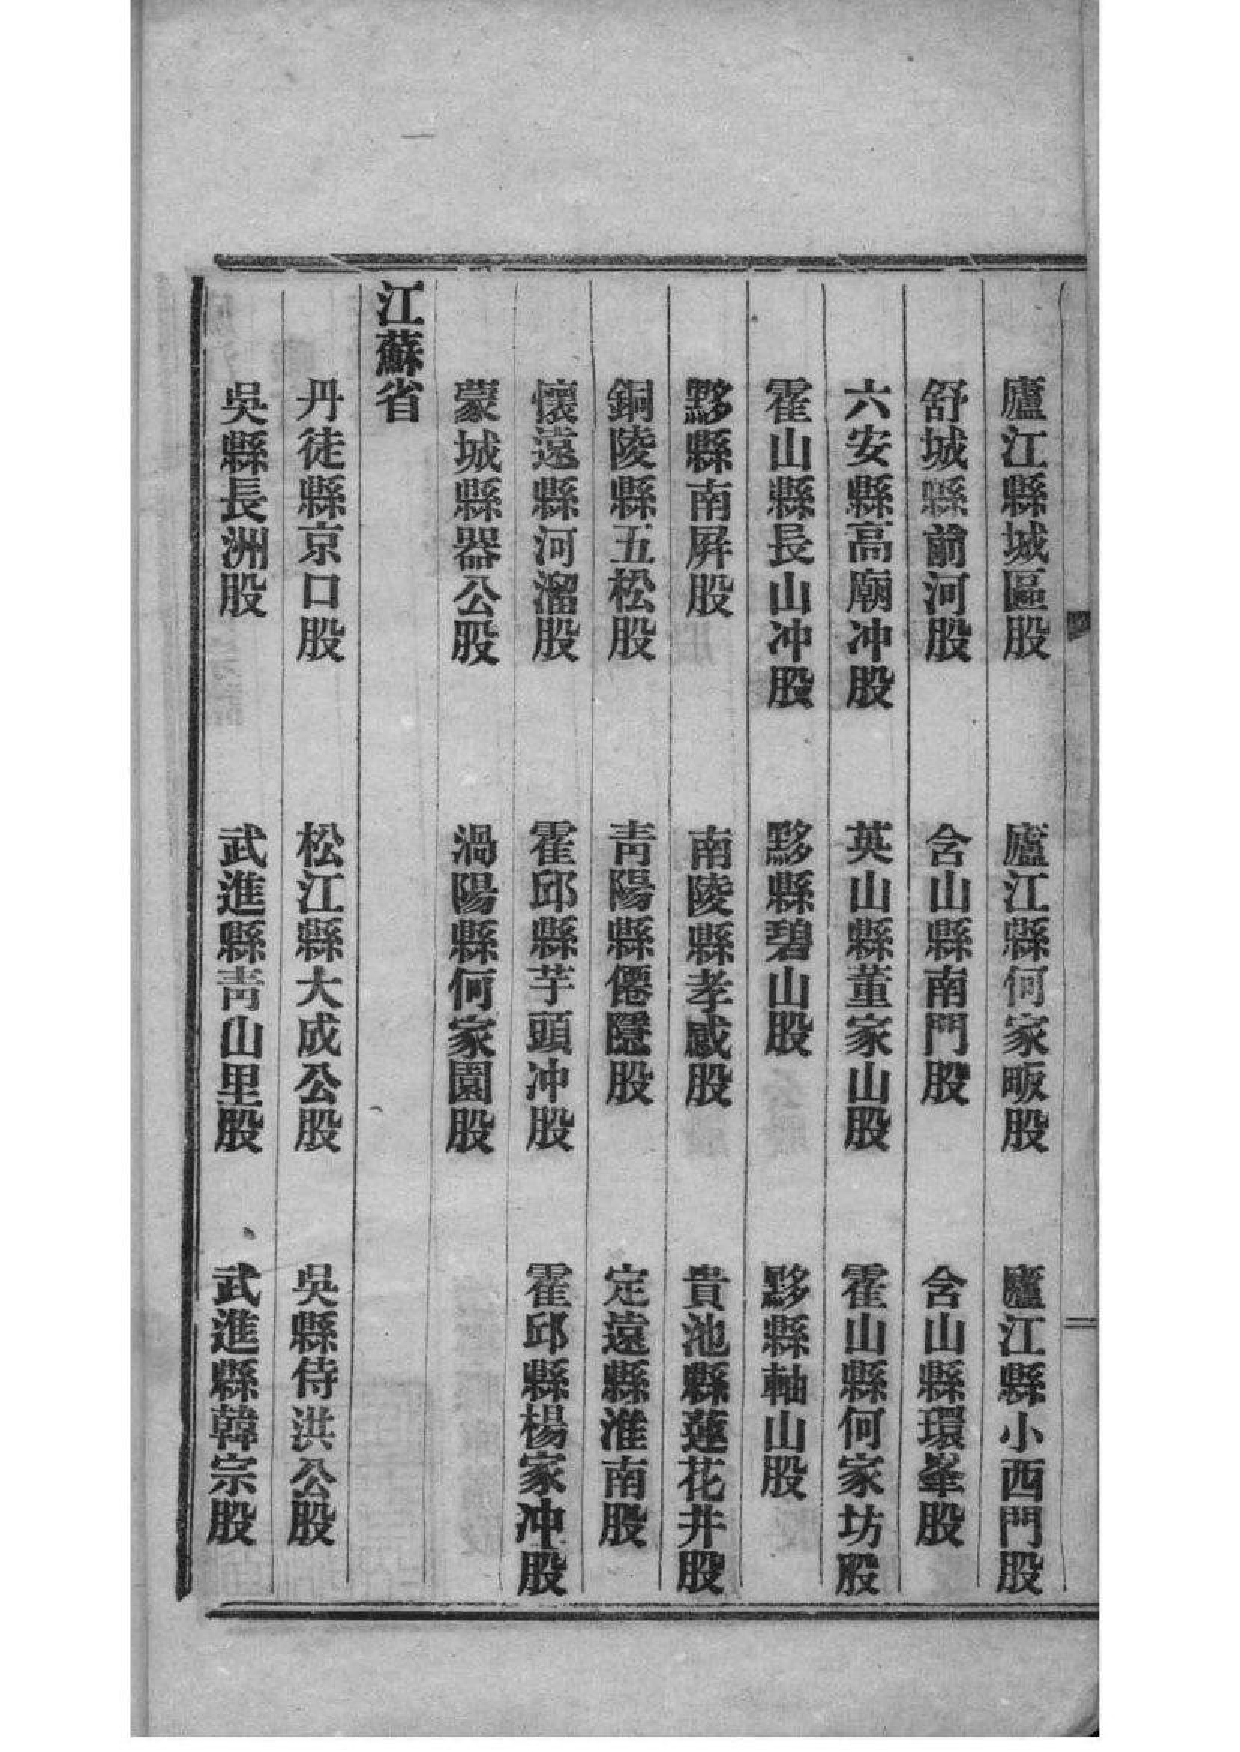 廬江縣城區股　廬江縣何家畈股　廬江縣小西門股
舒城縣前河股　含山縣南門股　含山縣環峯股
六安縣高廟冲股　英山縣董家山股　霍山縣何家坊股
霍山縣長山冲股　黟縣碧山股　黟縣軸山股
黟縣南屏股　南陵縣孝感股　貴池縣蓮花井股
銅陵縣五松股　青陽縣僊隱股　定遠縣淮南股
懷遠縣河溜股　霍邱縣芋頭冲股　霍邱縣楊家冲股
蒙城縣器公股　渦陽縣何家園股
江蘇省
丹徒縣京口股　松江縣大成公股　吳縣侍洪公股
吳縣長洲股　武進縣青山里股　武進縣韓宗股